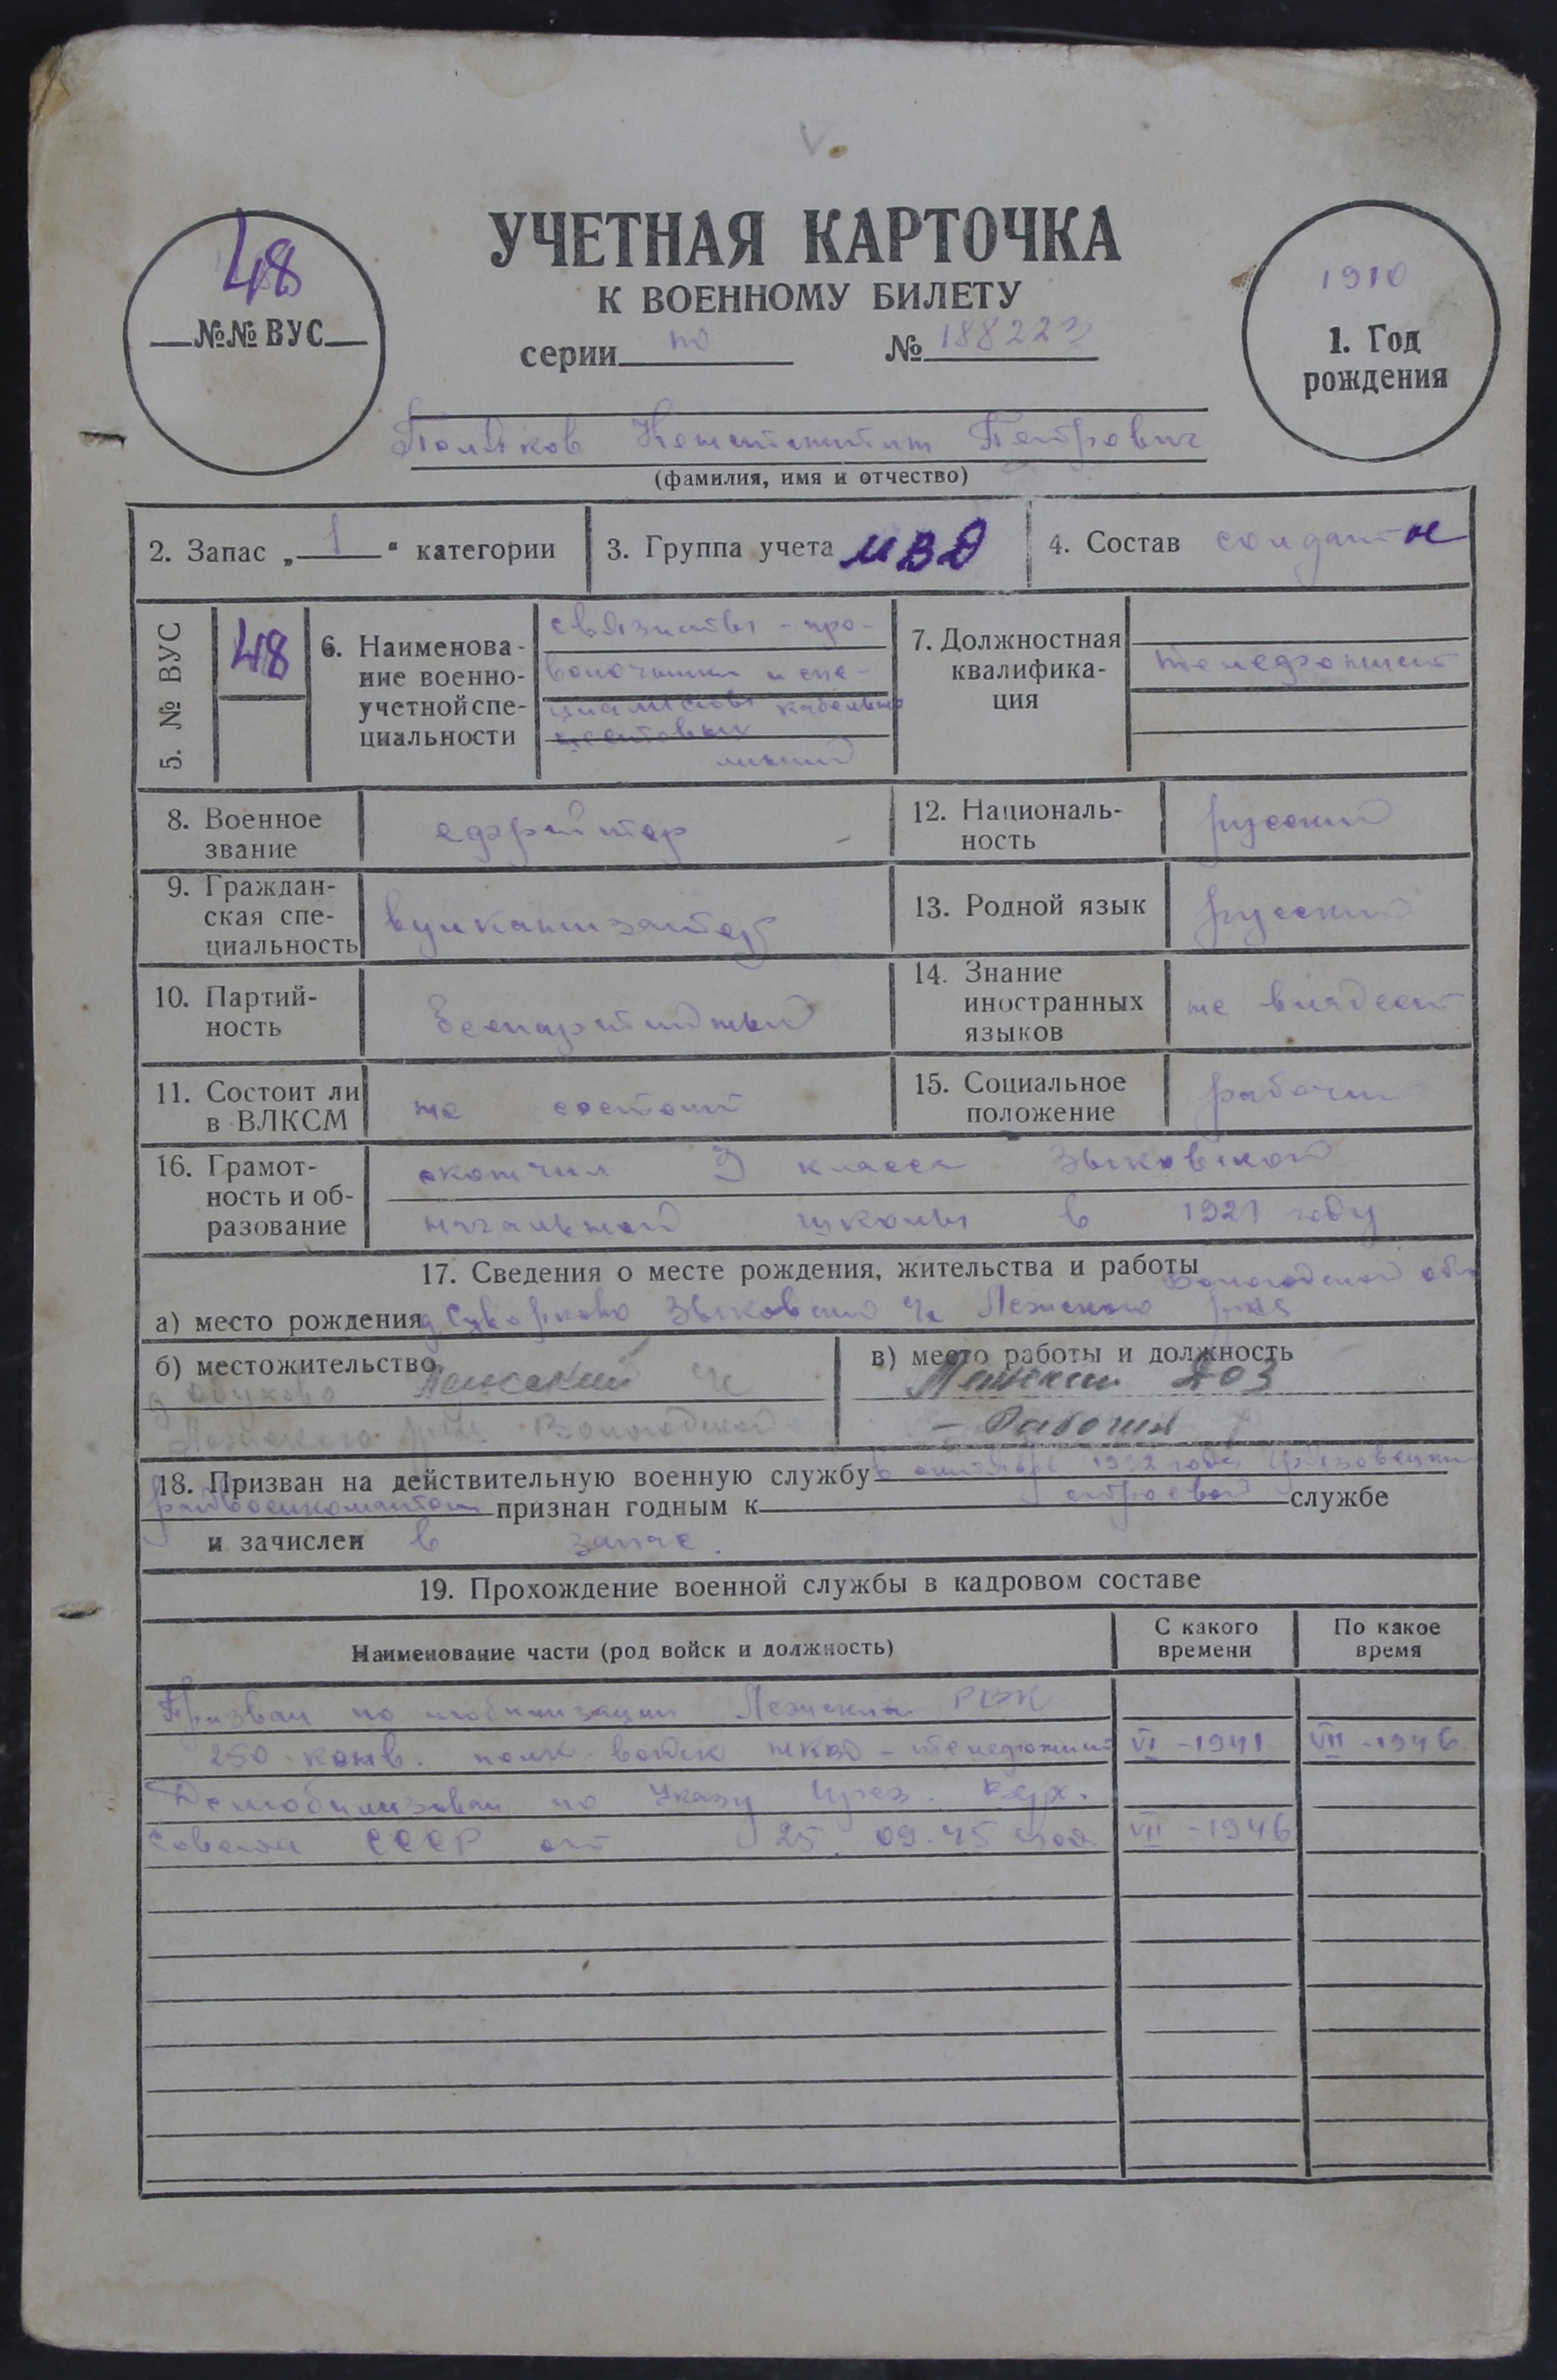 48
№№ ВУС
УЧЕТНАЯ КАРТОЧКА
К ВОЕННОМУ БИЛЕТУ
серии по № 188223
1910
1. Год
рождения
Поляков Константин Петрович
(фамилия, имя и отчество)
2. Запас „ 1 “ категории
3. Группа учета МВД
4. Состав солдаты
5. № ВУС
48
6. Наименова-
ние военно-
учетной спе-
циальности
связисты - про-
волочники и спе-
циалисты кабельно
шестовых
линий
7. Должностная
квалифика-
ция
телефонист
8. Военное
звание
ефрейтор
12. Националь-
ность
русский
9. Граждан-
ская спе-
циальность
вулканизатор
13. Родной язык
русский
10. Партий-
ность
беспартийный
14. Знание
иностранных
языков
не владеет
11. Состоит ли
в ВЛКСМ
не состоит
15. Социальное
положение
рабочий
16. Грамот-
ность и об-
разование
окончил 3 класса Зыковской
начальной школы в 1921 году
17. Сведения о месте рождения, жительства и работы
Вологодской обл
а) место рождения д Зыковский Лежского р-на
б) местожительство
д Обухово Лежский
Лежского р-на Вологодской
в) место работы и должность
Лежский ДОЗ
- Рабочий
18. Призван на действительную военную службу в октябре 1932 года Грязовецким
райвоенкоматом признан годным к строевой службе
и зачислен в запас.
19. Прохождение военной службы в кадровом составе
Наименование части (род войск и должность)
С какого
времени
По какое
время
Призван по мобилизации Лежским РВК
250 конв. полк войск НКВД - телефонист VI - 1941 VII - 1946
Демобилизован по Указу През. Верх.
Совета СССР от 25.09.45 года VII - 1946